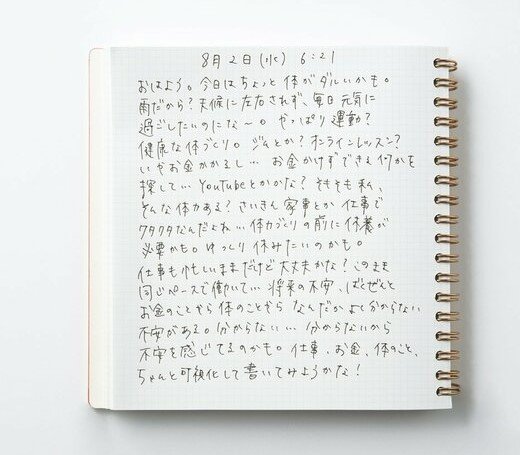 8月2日(水) 6:21
おはよう。今日はちょっと体がダルいかも。
雨だから?天候に左右されず、毎日元気に
過ごしたいのにな〜。やっぱり運動?
健康な体づくり。ジムとか?オンラインレッスン?
いやお金かかるし… お金かけずできる何かを
探して… YouTubeとかかな?そもそも私、
そんな体力ある?さいきん家事とか仕事で
クタクタなんだよねぃ体力づくりの前に休養が
必要かも。ゆっくり休みたいのかも。
仕事も忙しいままだけど大丈夫かな?このまま
同じペースで働いて… 将来の不安、ばくぜんと
お金のことやら体のことやらなんだかよく分からない
不安がある。分からない… 分からないから
不安を感じてるのかも。仕事、お金、体のこと、
ちゃんと可視化して書いてみようかな!